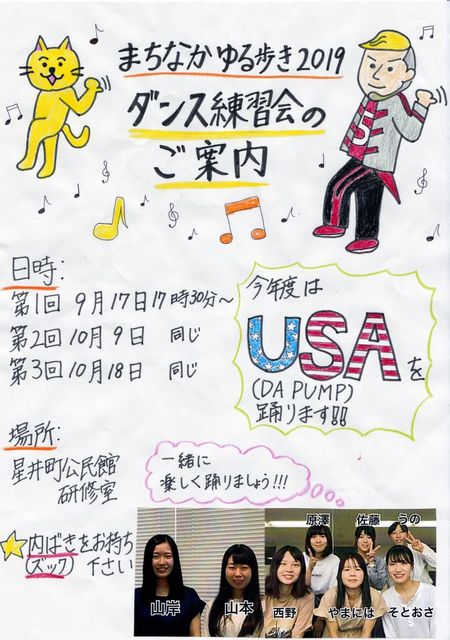 まちなかゆる歩き2019
ダンス練習会の
ご案内
日時:
第1回 9月17日17時30分~
第2回 10月9日 同じ
第3回 10月18日 同じ
今年度は
USAを
(DA PUMP)
踊ります!!
場所:
星井町公民館
研修室
一緒に
楽しく踊りましょう!!!
内ばきをお持ち
(ズック) 下さい
原澤 佐藤 うの
山岸 山本 西野 やまには そとおさ